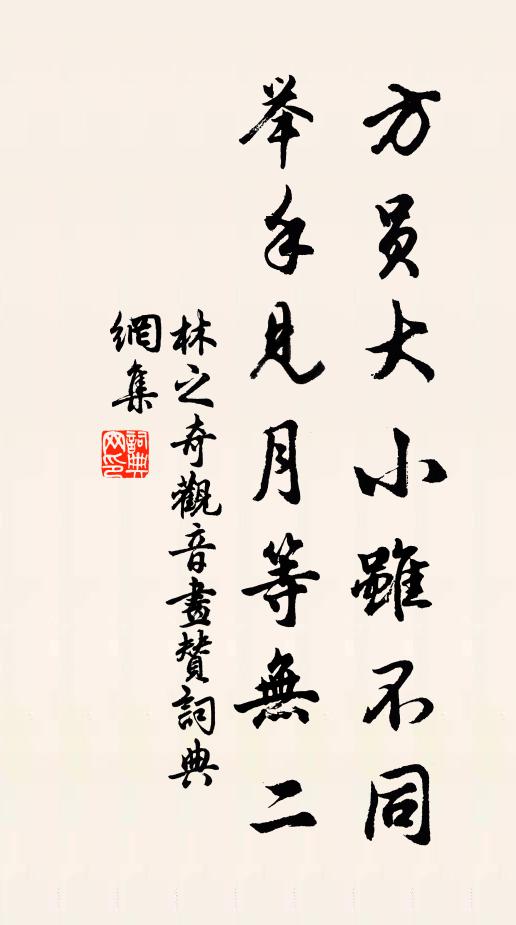 方员大小雖不同
举手見月等無二
林之奇觀音畫贊詞典
網集
詞典
网印